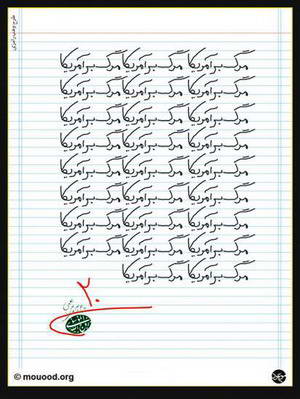 مرگ بر آمریکا مرگ بر آمریکا مرگ بر آمریکا
مرگ بر آمریکا مرگ بر آمریکا مرگ بر آمریکا
مرگ بر آمریکا مرگ بر آمریکا مرگ بر آمریکا
مرگ بر آمریکا مرگ بر آمریکا مرگ بر آمریکا
مرگ بر آمریکا مرگ بر آمریکا مرگ بر آمریکا
مرگ بر آمریکا مرگ بر آمریکا مرگ بر آمریکا
مرگ بر آمریکا مرگ بر آمریکا مرگ بر آمریکا
مرگ بر آمریکا مرگ بر آمریکا مرگ بر آمریکا
مرگ بر آمریکا مرگ بر آمریکا
۲۰
© mouood.org